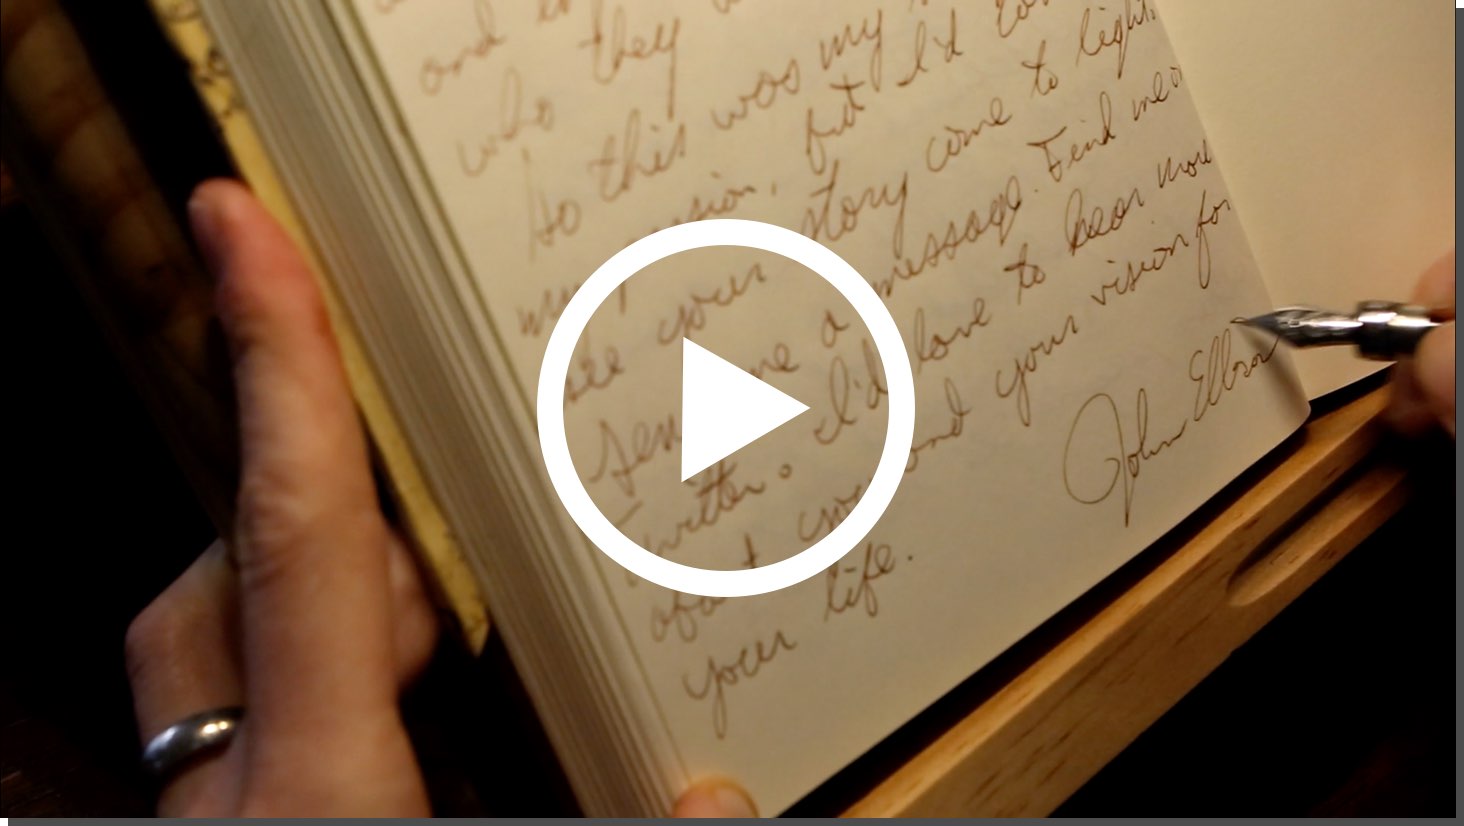 and
who they
So this was my
my vision, but I'd
see your story come to light.
Send me a message. Find me on
twitter. I'd love to hear more
about you and your vision for
your life.
John Elbron